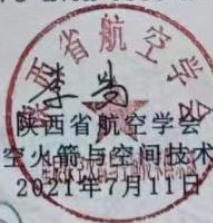 陕西省航空学会
李尚
陕西省航空学会
空火箭与空间技术
2021年7月11日